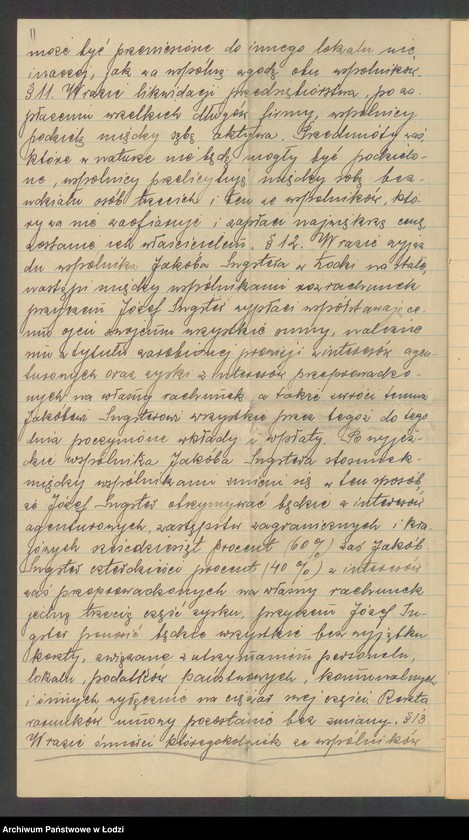 11
może być przeniesione do innego lokalu nie
inaczej, jak za wspólną zgodą obu wspólników.
§ 11. W razie likwidacji przedsiębiorstwa, po za-
płaceniu wszelkich długów firmy, wspólnicy
podzielą między sobą aktywa. Przedmioty zaś
które w naturze nie będą mogły być podzielo-
ne, wspólnicy przelicytują między sobą bez
udziału osób trzecich i ten ze wspólników, któ-
ry za nie zaofiaruje i zapłaci najwyższą cenę,
zostanie ich właścicielem. § 12. W razie wyjaz-
du wspólnika Jakóba Ingstera z Łodzi na stałe,
nastąpi między wspólnikami rozrachunek
przyczem Józef Ingster wypłaci współstawające-
mu ojcu swojemu wszystkie sumy, należne
mu z tytułu zarobionej prowizji z interesów agen-
turowych oraz zyski z interesów przeprowadzo-
nych na własny rachunek, a także zwróci temuż
Jakóbowi Ingsterowi wszystkie przez tegoż do tego
dnia poczynione wkłady i wpłaty. Po wyjeź-
dzie wspólnika Jakóba Ingstera stosunek
między wspólnikami zmieni się w ten sposób
że Józef Ingster otrzymywać będzie z interesów
agenturowych, zastępstw zagranicznych i kra-
jowych sześćdziesiąt procent (60 %) zaś Jakób
Ingster czterdzieści procent (40 %) z interesów
zaś przeprowadzonych na własny rachunek
jedną trzecią część zysku, przyczem Józef In-
gster ponosić będzie wszystkie bez wyjątku
koszty, związane z utrzymaniem personelu,
lokalu, podatków państwowych, komunalnych
i innych wyłącznie na ciężar swej części. Reszta
warunków umowy pozostanie bez zmiany. § 13
W razie śmierci któregokolwiek ze wspólników
Archiwum Państwowe w Łodzi